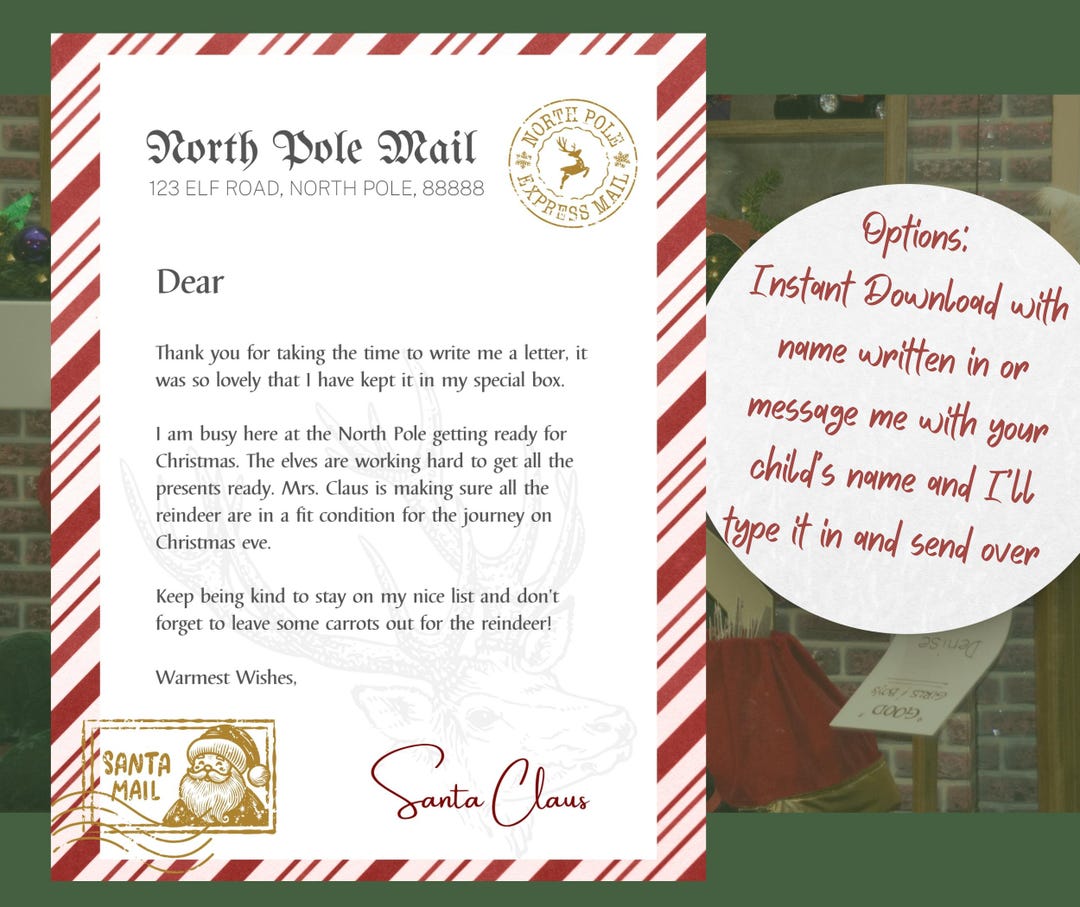 North Pole Mail
123 ELF ROAD, NORTH POLE, 88888
NORTH POLE
EXPRESS MAIL
Dear
Thank you for taking the time to write me a letter, it
was so lovely that I have kept it in my special box.
I am busy here at the North Pole getting ready for
Christmas. The elves are working hard to get all the
presents ready. Mrs. Claus is making sure all the
reindeer are in a fit condition for the journey on
Christmas eve.
Keep being kind to stay on my nice list and don't
forget to leave some carrots out for the reindeer!
Warmest Wishes,
SANTA
MAIL
Santa Claus
Options:
Instant Download with
name written in or
message me with your
child's name and I'll
type it in and send over
"GOOD"
GIRLS / BOYS
Denise